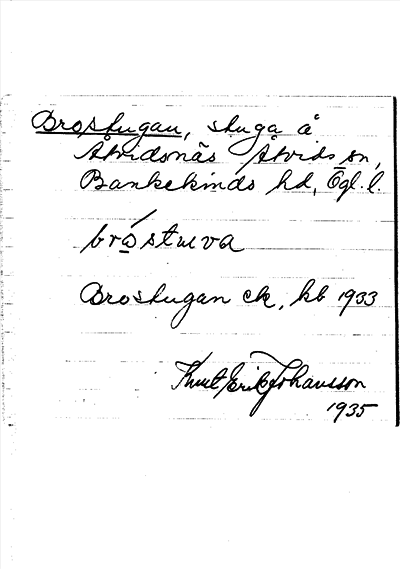 Brostugan, stuga å
Åtvidsnäs Åtvids sn,
Bankekinds hd, Ögl. l.
bró̲stuva
Brostugan ek, kb 1933
Knut Erik Johansson
1935